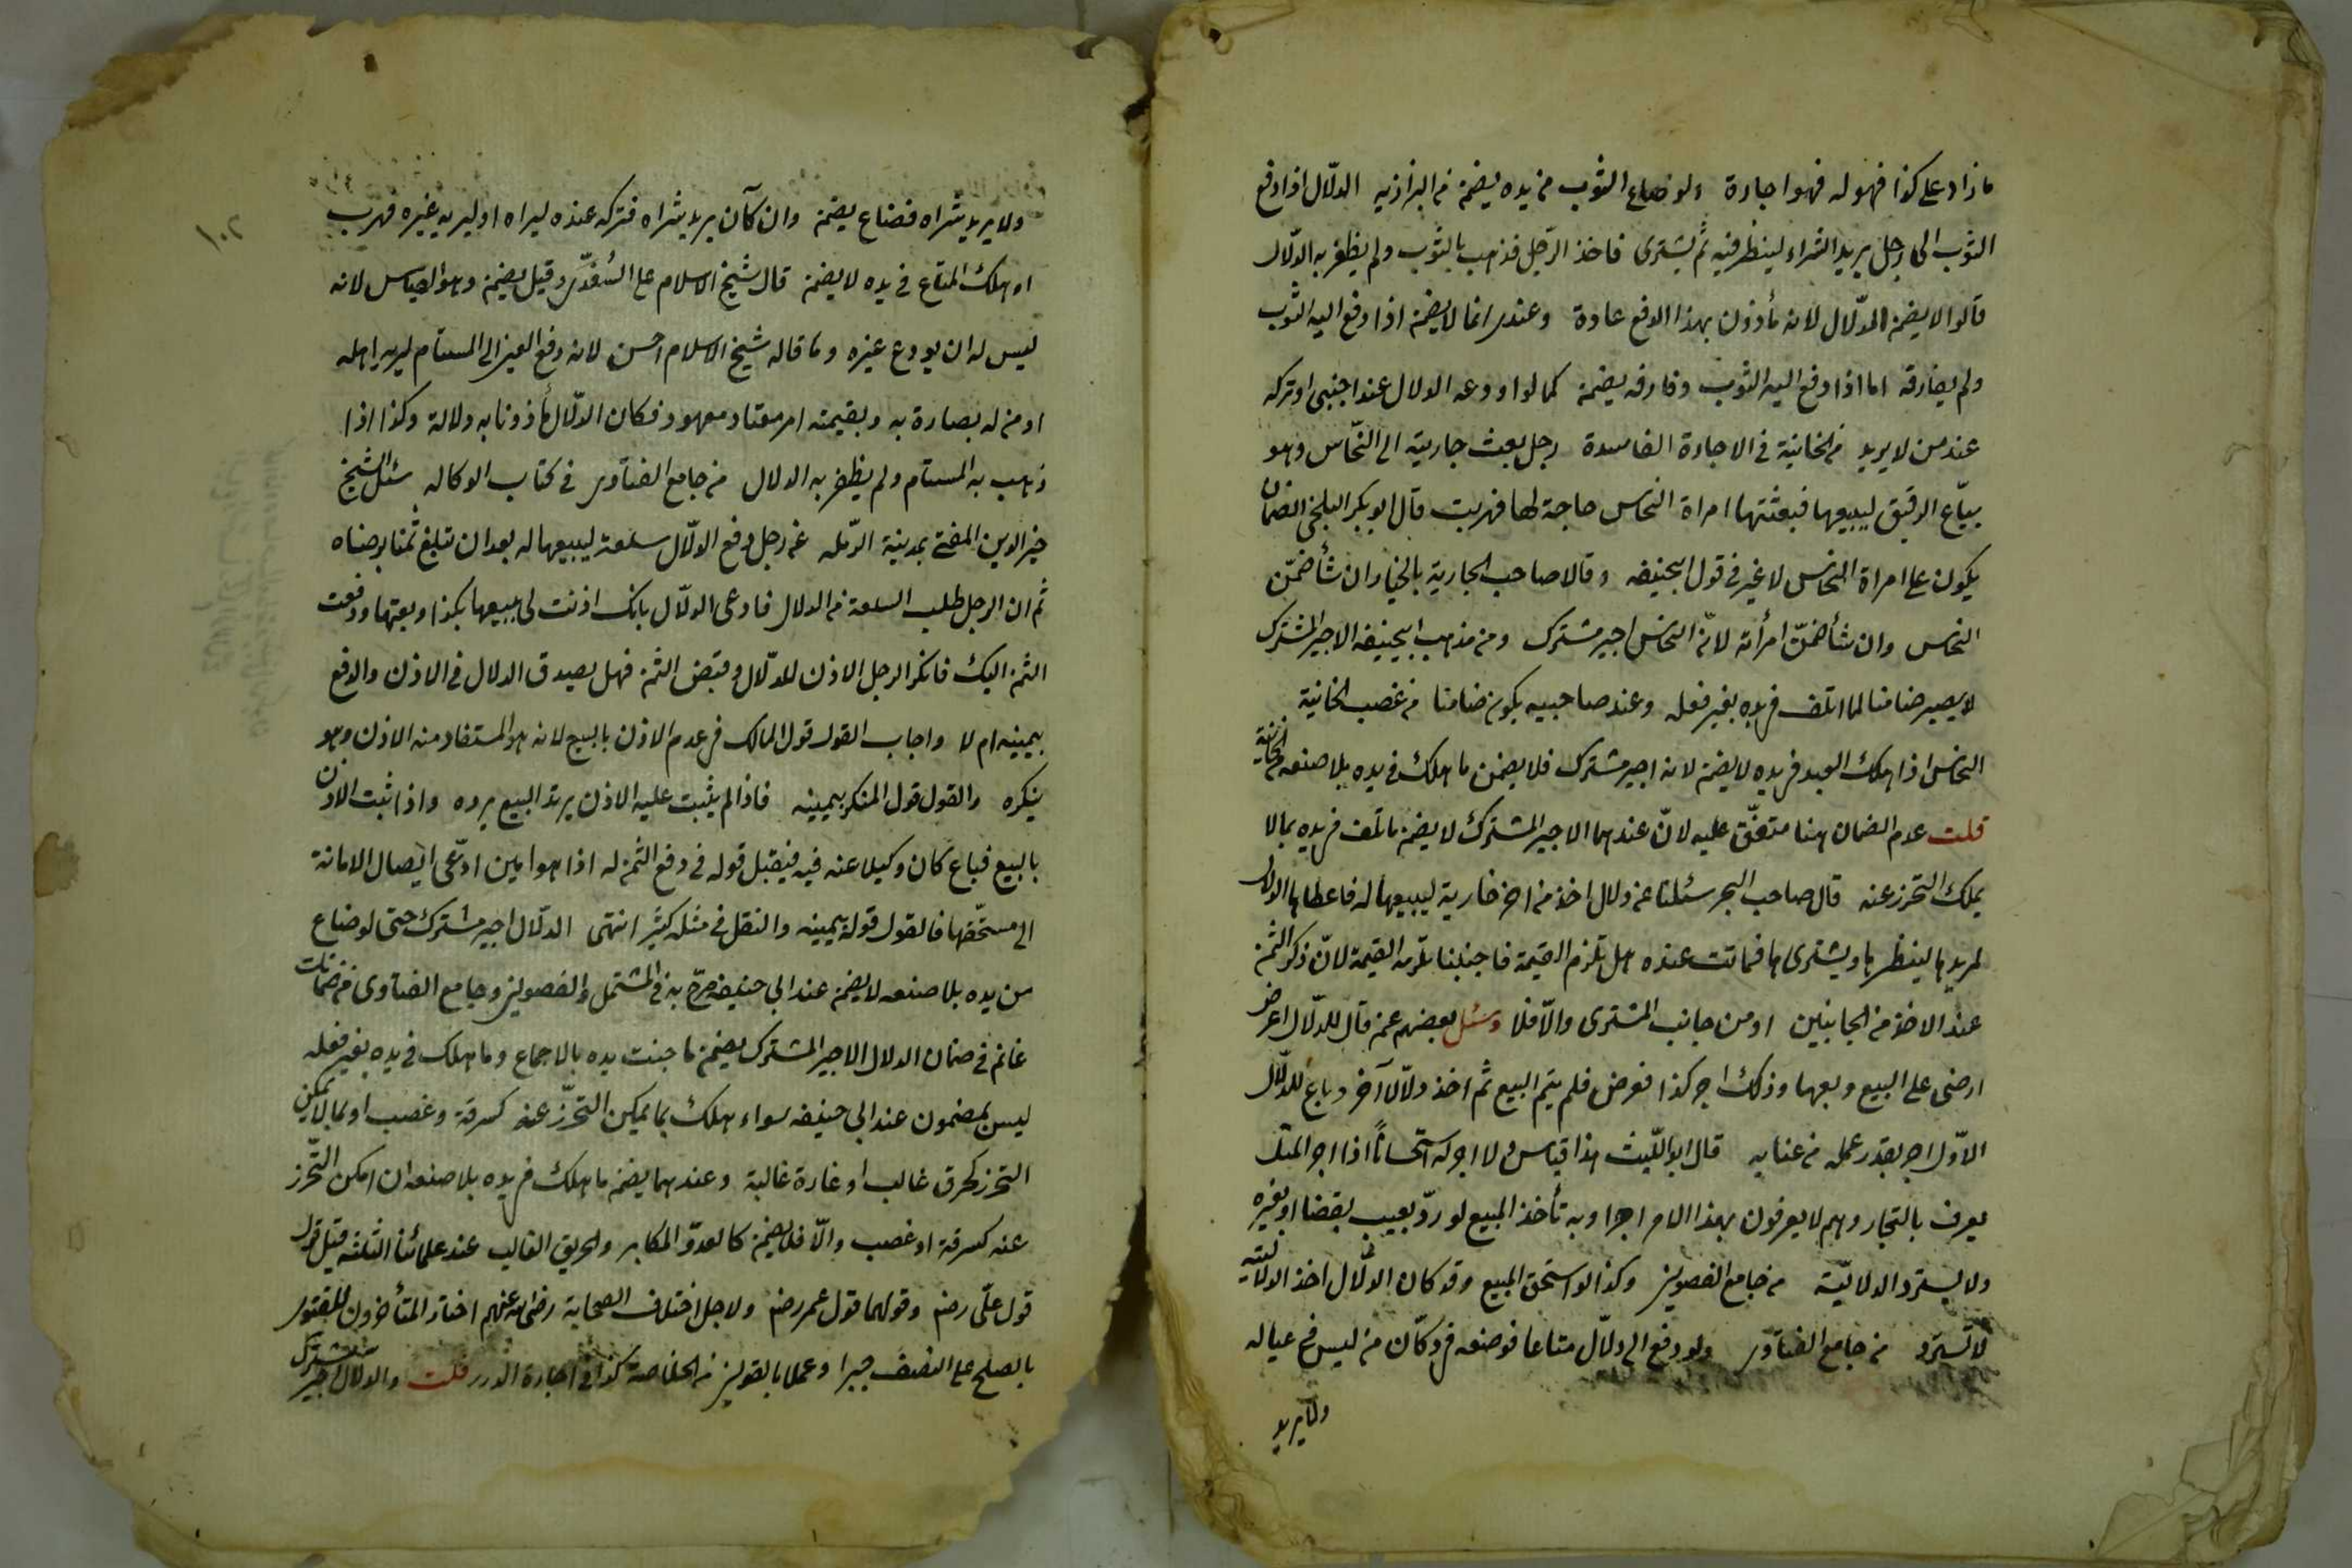 ما زاد على كذا فهو له فهو اجارة ولو ضاع الثوب من يده يضمن من البزازيه الدلّال اذا دفع
الثوب الى رجل يريد الشراء لينظر فيه ثم يشترى فاخذ الرّجل فذهب بالثوب ولم يظفر به الدّلال
قالوا لا يضمن الدّلال لانه مأذون بهذا الدفع عادة وعندى انما لا يضمن اذا دفع اليه الثوب
ولم يفارقه اما اذا دفع اليه الثوب وفارقه يضمن كما لو اودعه الدلال عند اجنبى او تركه
عند من لا يريد من الخانية فى الاجارة الفاسدة رجل بعث جاريته الى النخّاس وهو
بيّاع الرقيق ليبيعها فبعثتها امراة النخاس حاجة لها فهربت قال ابو بكر البلخى الضمان
يكون على امراة النخاس لا غير فى قول ابيحنيفه وقالا صاحب الجارية بالخيار ان شأ ضمّن
النخاس وان شأ ضمّن امرأته لانّ النخاس اجير مشترك ومن مذهب ابيحنيفه الاجير المشترك
لا يصير ضامنا لما اتلف فى يده بغير فعله وعند صاحبيه يكون ضامنا من غصب الخانية
النخاس اذا هلك العبد فى يده لا يضمن لانه اجير مشترك فلا يضمن ما هلك فى يده بلا صنعه من الخانية
قلت عدم الضمان هنا متفق عليه لانّ عندهما الاجير المشترك لا يضمن ما تلف فى يده بما لا
يملك التحرز عنه قال صاحب البحر سئلنا عن دلال اخذ من اخر خارية ليبيعها له فاعطاها الدلال
لمريدها لينظرها ويشترى ها فماتت عنده هل تلزم القيمة فاجبنا تلزمه القيمة لانّ ذكر الثمن
عند الاخذ من الجانبين او من جانب المشترى والّا فلا وسئل بعضهم عمن قال للدلّال اعرض
ارضى على البيع وبعها وذلك اجر كذا فعرض فلم يتم البيع ثم اخذ دلّالا آخر وباع للدلّال
الاوّل اجر بقدر عمله من عنايه قال ابو اللّيث هذا قياس ولا اجر له استحسانًا اذا اجر المثل
يعرف بالتجار وهم لا يعرفون بهذا الامر اجرا وبه نأخذ المبيع لو ردّ بعيب بقضا او بغيره
ولا يسترد الدلاليّة من جامع الفصولين وكذا لو استحق المبيع وقد كان الدلّال اخذ الدلاليه
لا تسترد من جامع الفتاوى ولو دفع الى دلّال متاعا فوضعه فى دكّان من ليس فى عياله
ولا يريد
١٠٢
ولا يريد شراه فضاع يضمن وان كان يريد شراه فتركه عنده ليراه او ليريه غيره فهرب
او هلك المتاع فى يده لا يضمن قال شيخ الاسلام على السُغدّى وقيل يضمن وهو القياس لانه
ليس له ان يودع غيره وما قاله شيخ الاسلام احسن لانه دفع العين الى المستام ليريه اهله
او من له بصارة به وبقيمته امر معتاد معهود فكان الدلّال مأذونا به دلالة وكذا اذا
ذهب به المستام ولم يظفر به الدلال من جامع الفتاوى فى كتاب الوكاله سئل الشيخ
خير الدين المفتى بمدينة الرّمله عن رجل دفع الدلّال سلعة ليبيعها له بعد ان تبلغ ثمنا يرضاه
ثم ان الرجل طلب السلعة من الدلال فادعى الدلّال بانك اذنت لى ببيعها بكذا وبعتها ودفعت
الثمن اليك فانكر الرجل الاذن للدلّال وقبض الثمن فهل يصدق الدلال فى الاذن والدفع
بيمينه ام لا واجاب القول قول المالك فى عدم الاذن بالبيع لانه هو المستفاد منه الاذن وهو
ينكره والقول قول المنكر بيمينه فاذا لم يثبت عليه الاذن يرتد البيع برده واذا ثبت الاذن
بالبيع فباع كان وكيلا عنه فيه فيقبل قوله فى دفع الثمن له اذا هو امين ادّعى ايصال الامانة
الى مستحّقها فالقول قوله بيمينه والنقل فى مثله كثير انتهى الدلّال اجير مشترك حتى لو ضاع
من يده بلا صنعه لا يضمن عند ابى حنيفه صرّح به فى المشتمل والفصولين وجامع الفتاوى من ضمانات
غانم فى ضمان الدلال الاجير المشترك يضمن ما جنت يده بالاجماع وما هلك فى يده بغير فعله
ليس بمضمون عند ابى حنيفه سواء هلك بما يمكن التحرّز عنه كسرقة وغصب او بما لا يمكن
التحرز كحرق غالب او غارة غالبة وعندهما يضمن ما هلك فى يده بلا صنعه ان امكن التحّرز
عنه كسرقة او غصب والّا فلا يضمن كالعدوّ المكابر والحريق الغالب عند علمائنا الثلثه قيل قوله
قول علّى رضم وقولهما قول عمر رضم ولاجل اختلاف الصحابة رضى الله عنهم اختار المتأخرون للفتوى
بالصلح على النصف جبرا وعملا بالقولين من الخلاصة كذا فى اجارة الدرر قلت والدلال اجير مشترك